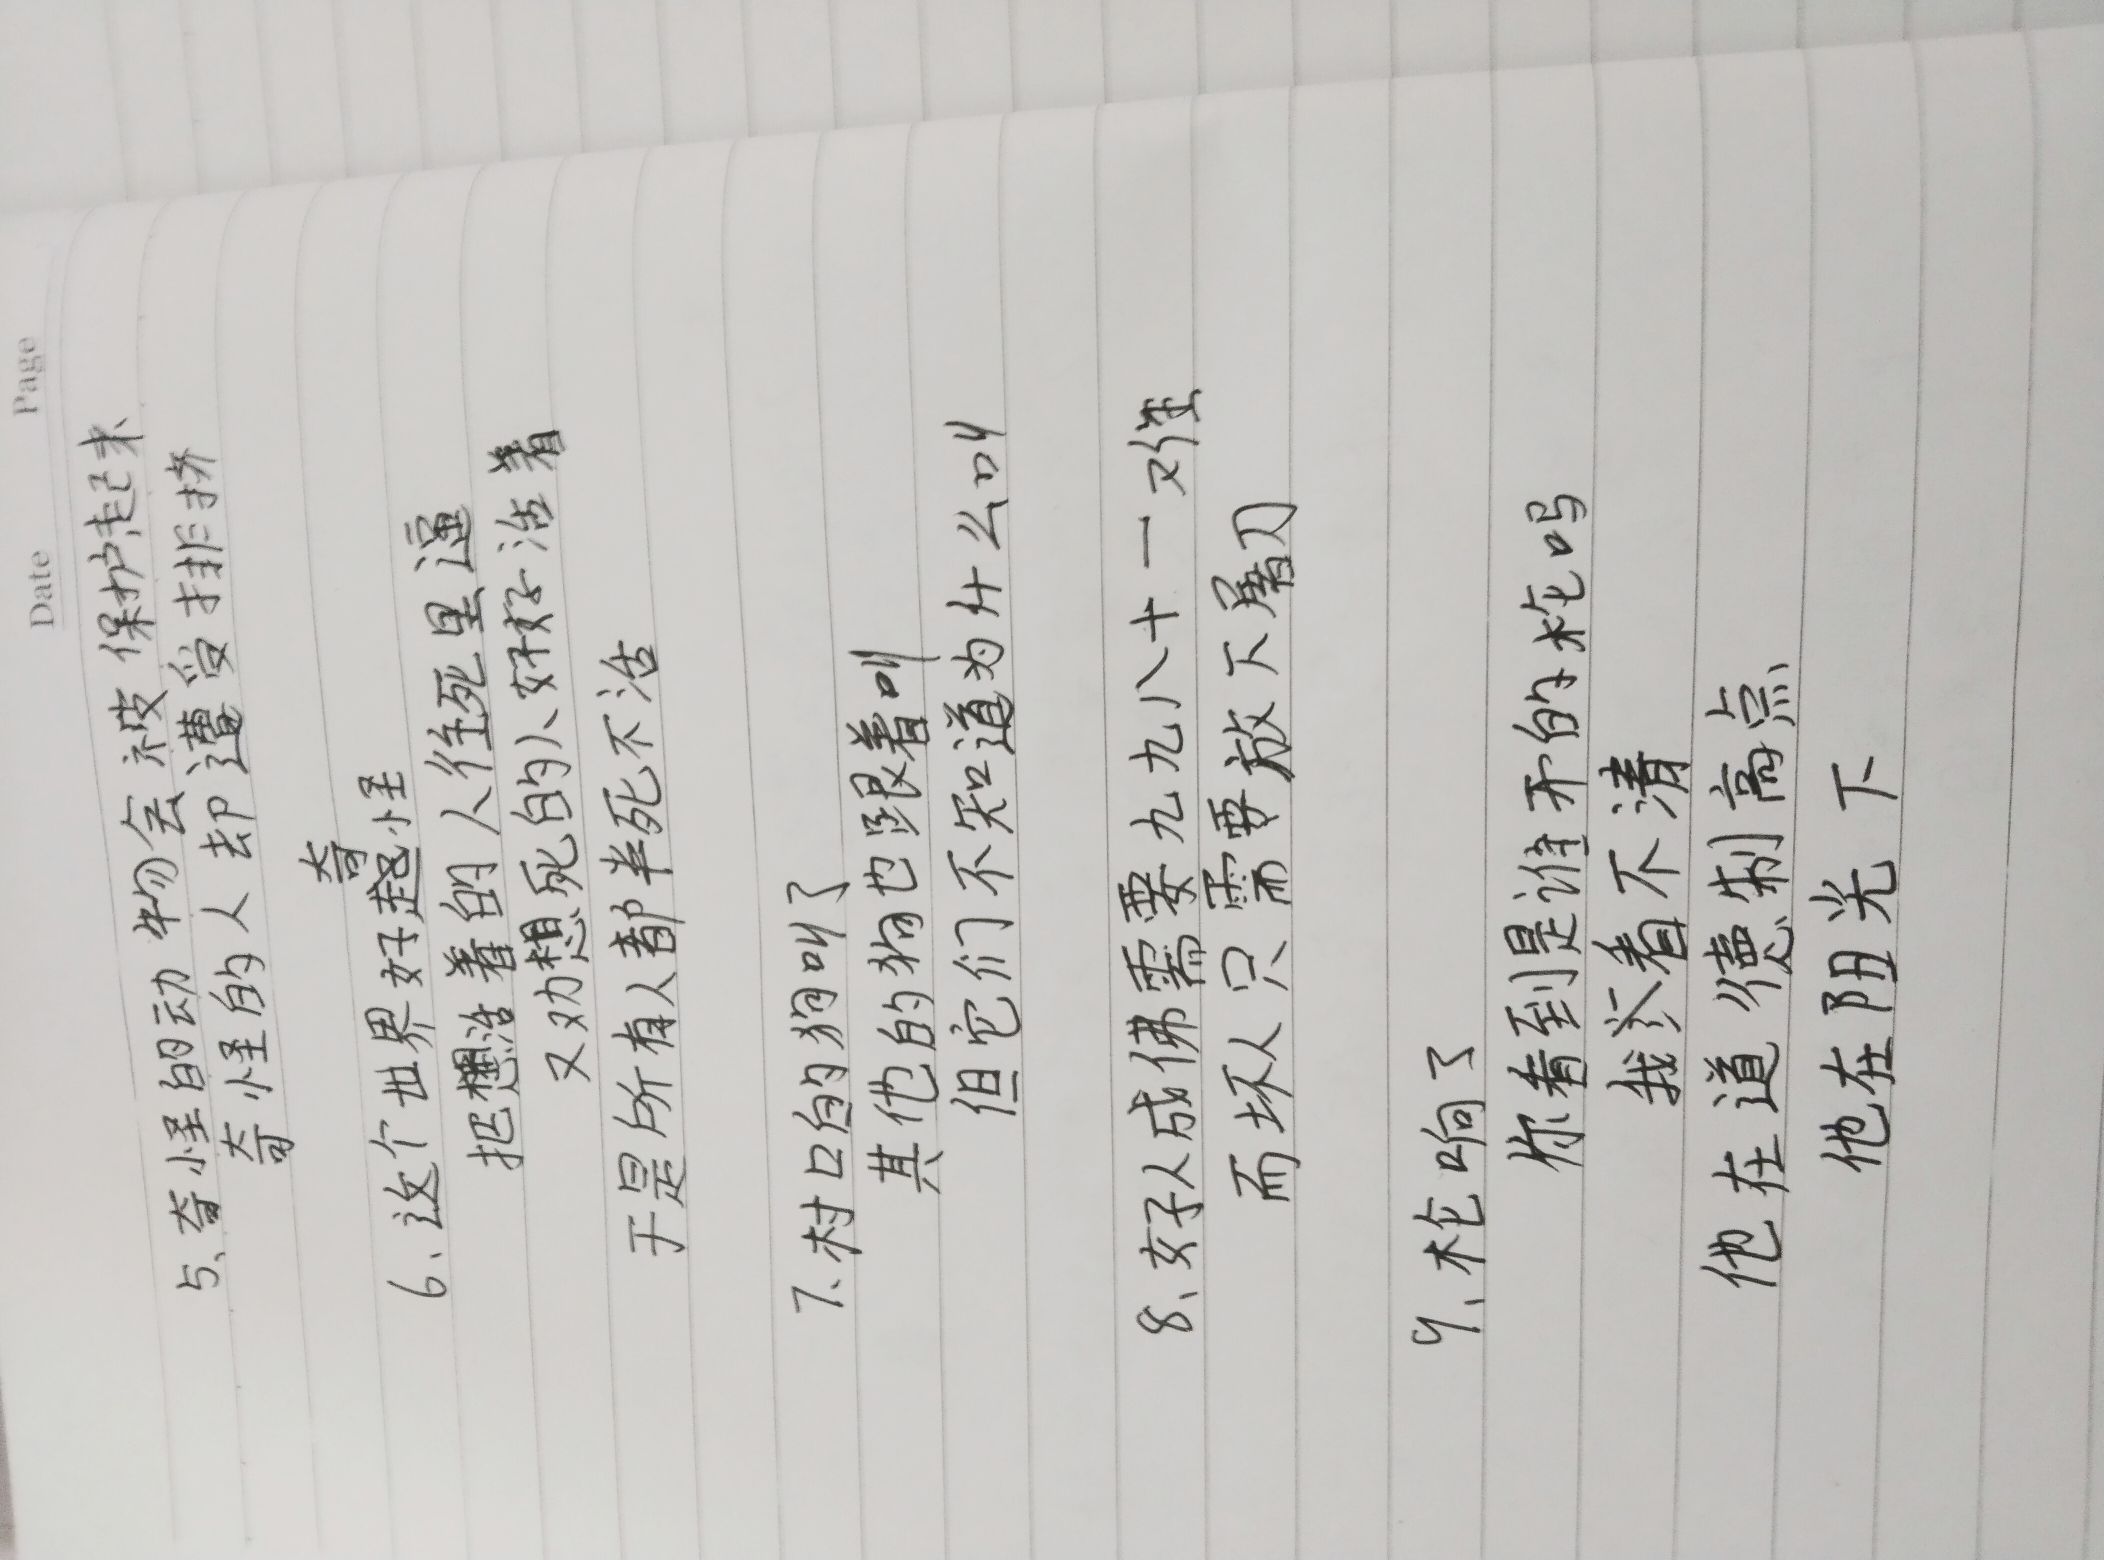 Date Page
5、奇怪的动物会被保护起来
奇怪的人却遭受排挤
奇
6、这个世界好怪
把想活着的人往死里逼
又劝想死的人好好活着
于是所有人都半死不活
7、村口的狗叫了
其他的狗也跟着叫
但它们不知道为什么叫
8、好人成佛需要九九八十一难
而坏人只需要放下屠刀
9、枪响了
你看到是谁开的枪吗
我看不清
他在道德制高点
他在阳光下